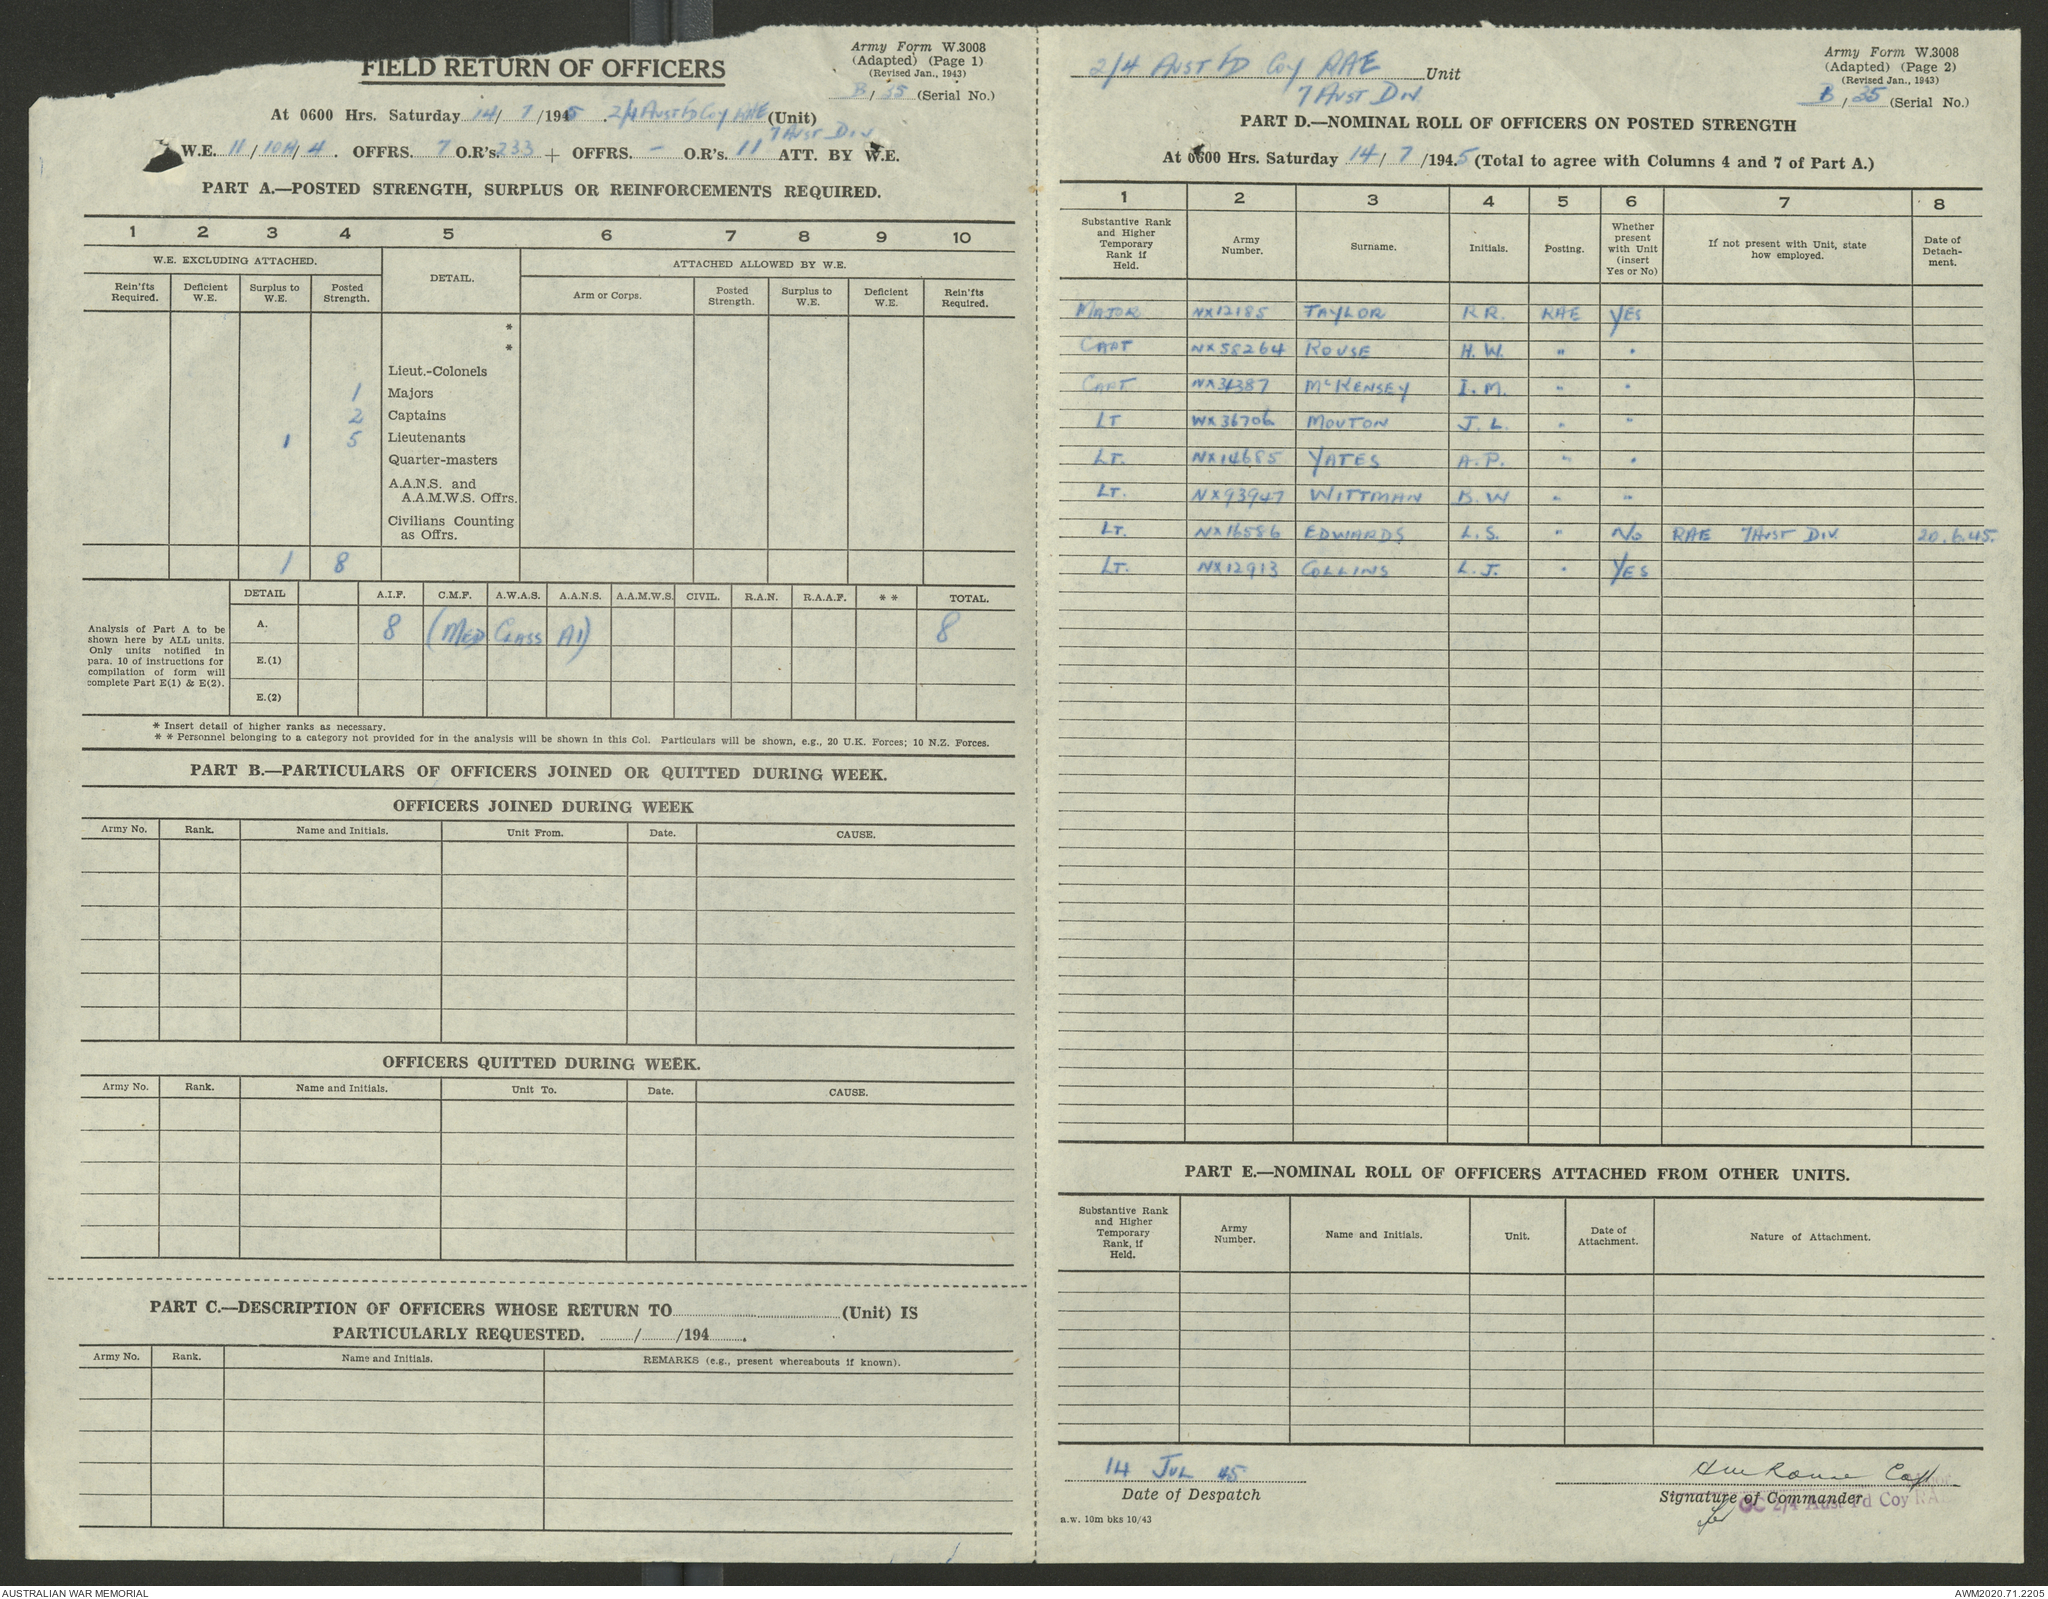 FIELD RETURN OF OFFICERS
Army Form W.3008
(Adapted) (Page 1)
(Revised Jan., 1943)
B / 35 (Serial No.)
At 0600 Hrs. Saturday 14/ 7 /1945 2/4 Aust Fd Coy RAE (Unit)
7 Aust Div
W.E. 11 / 10A / 4 . OFFRS. 7 O.R's. 233 + OFFRS. - O.R's. 11 ATT. BY W.E.
PART A.—POSTED STRENGTH, SURPLUS OR REINFORCEMENTS REQUIRED.
1 2 3 4 5 6 7 8 9 10
W.E. EXCLUDING ATTACHED. DETAIL. ATTACHED ALLOWED BY W.E.
Rein'fts Required. Deficient W.E. Surplus to W.E. Posted Strength. Arm or Corps. Posted Strength. Surplus to W.E. Deficient W.E. Rein'fts Required.
*
*
Lieut.-Colonels
1 Majors
2 Captains
1 5 Lieutenants
Quarter-masters
A.A.N.S. and
A.A.M.W.S. Offrs.
Civilians Counting
as Offrs.
1 8
DETAIL A.I.F. C.M.F. A.W.A.S. A.A.N.S. A.A.M.W.S. CIVIL. R.A.N. R.A.A.F. * * TOTAL.
Analysis of Part A to be
shown here by ALL units.
Only units notified in
para. 10 of instructions for
compilation of form will
complete Part E(1) & E(2).
A. 8 (Med Class A1) 8
E.(1)
E.(2)
* Insert detail of higher ranks as necessary.
* * Personnel belonging to a category not provided for in the analysis will be shown in this Col. Particulars will be shown, e.g., 20 U.K. Forces; 10 N.Z. Forces.
PART B.—PARTICULARS OF OFFICERS JOINED OR QUITTED DURING WEEK.
OFFICERS JOINED DURING WEEK
Army No. Rank. Name and Initials. Unit From. Date. CAUSE.
OFFICERS QUITTED DURING WEEK.
Army No. Rank. Name and Initials. Unit To. Date. CAUSE.
PART C.—DESCRIPTION OF OFFICERS WHOSE RETURN TO (Unit) IS
PARTICULARLY REQUESTED. / /194 .
Army No. Rank. Name and Initials. REMARKS (e.g., present whereabouts if known).
2/4 Aust Fd Coy RAE Unit
7 Aust Div.
Army Form W.3008
(Adapted) (Page 2)
(Revised Jan., 1943)
B / 35 (Serial No.)
PART D.—NOMINAL ROLL OF OFFICERS ON POSTED STRENGTH
At 0600 Hrs. Saturday 14 / 7 /1945 (Total to agree with Columns 4 and 7 of Part A.)
1 2 3 4 5 6 7 8
Substantive Rank and Higher Temporary Rank if Held. Army Number. Surname. Initials. Posting. Whether present with Unit (insert Yes or No) If not present with Unit, state how employed. Date of Detach-ment.
MAJOR NX12185 TAYLOR R.R. RAE YES
CAPT NX58264 ROUSE H.W. " "
CAPT NX31387 McKENSEY I.M. " "
LT WX36706 MOUTON J.L. " "
LT. NX14685 YATES A.P. " "
LT. NX93947 WITTMAN B.W " "
LT. NX16586 EDWARDS L.S. " No RAE 7 AUST DIV. 20.6.45.
LT. NX12913 COLLINS L.J. " YES
PART E.—NOMINAL ROLL OF OFFICERS ATTACHED FROM OTHER UNITS.
Substantive Rank and Higher Temporary Rank, if Held. Army Number. Name and Initials. Unit. Date of Attachment. Nature of Attachment.
14 Jul 45
Date of Despatch
HW Rouse Capt
Signature of Commander
for OC 2/4 Aust Fd Coy RAE
a.w. 10m bks 10/43
AUSTRALIAN WAR MEMORIAL
AWM2020.71.2205